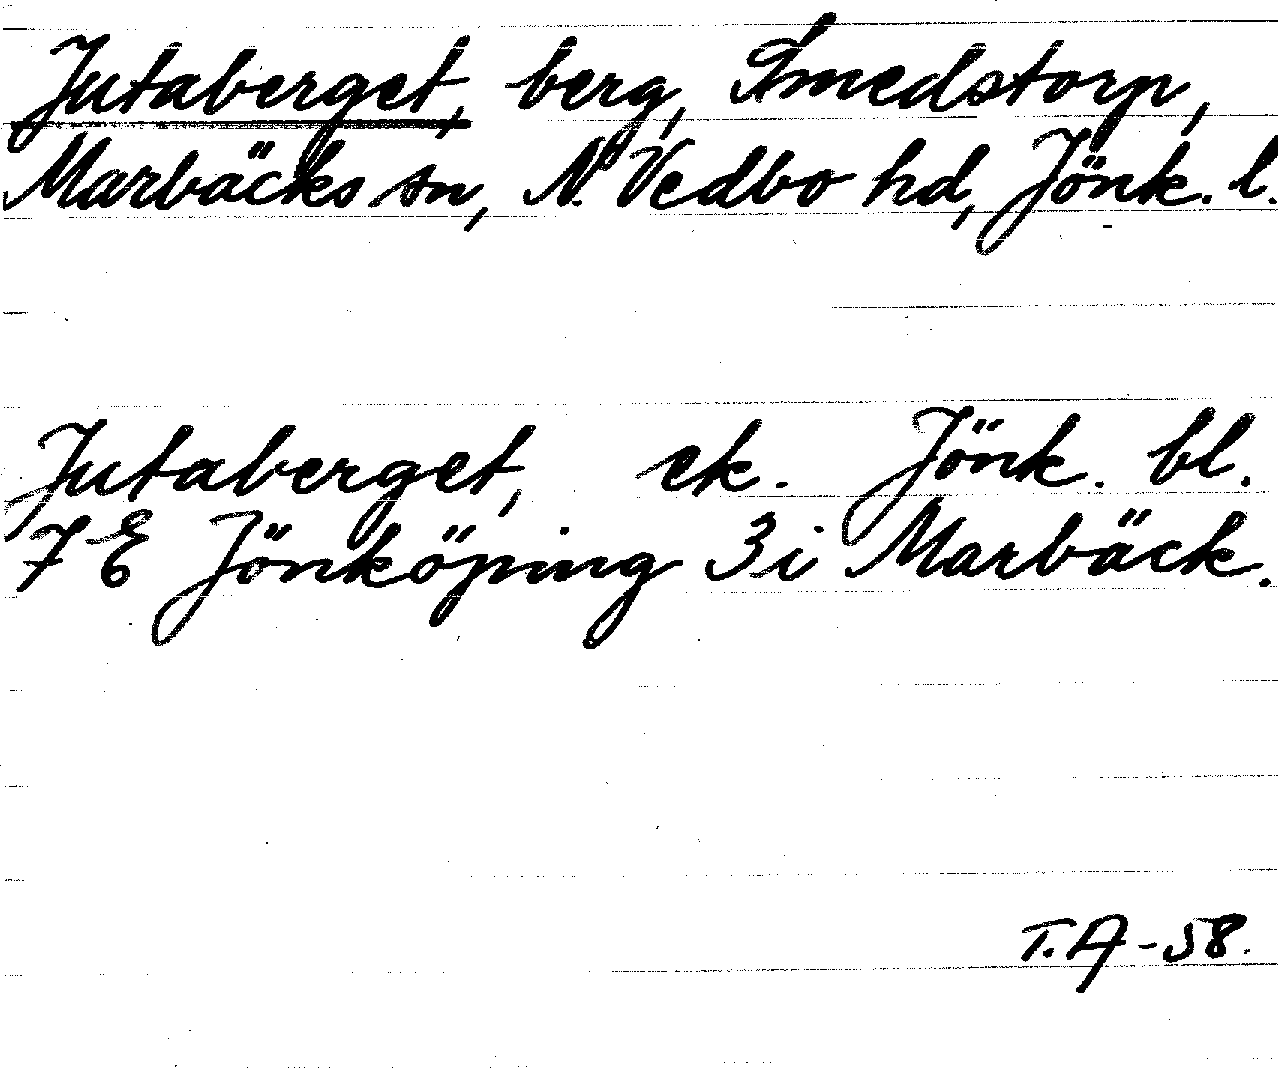 Jutaberget, berg, Smedstorp,
Marbäcks sn, N. Vedbo hd, Jönk. l.
Jutaberget, ek. Jönk. bl.
7 E Jönköping 3i Marbäck.
T.A-58.